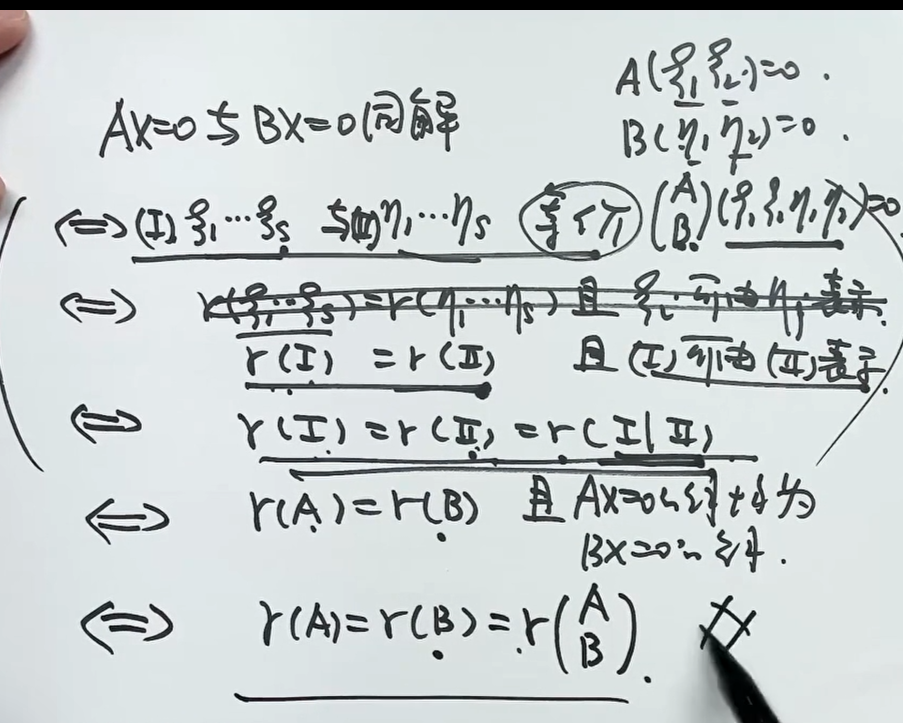 A(ξ₁ ξ₂)=0.
AX=0 与 BX=0 同解
B(η₁, η₂)=0.
⇔ (I) ξ₁…ξₛ 与(II) η₁…ηₛ 等价 (A B)(ξ₁ ξ₂ η₁ η₂)=0
⇔ r(ξ₁…ξₛ)=r(η₁…ηₛ) 且 ξᵢ 可由 ηⱼ 表示.
r(I) = r(II) 且 (I) 可由 (II) 表示.
⇔ r(I) = r(II) = r(I|II)
⇔ r(A)=r(B) 且 AX=0的解均为
BX=0的解.
⇔ r(A)=r(B)=r(A B).